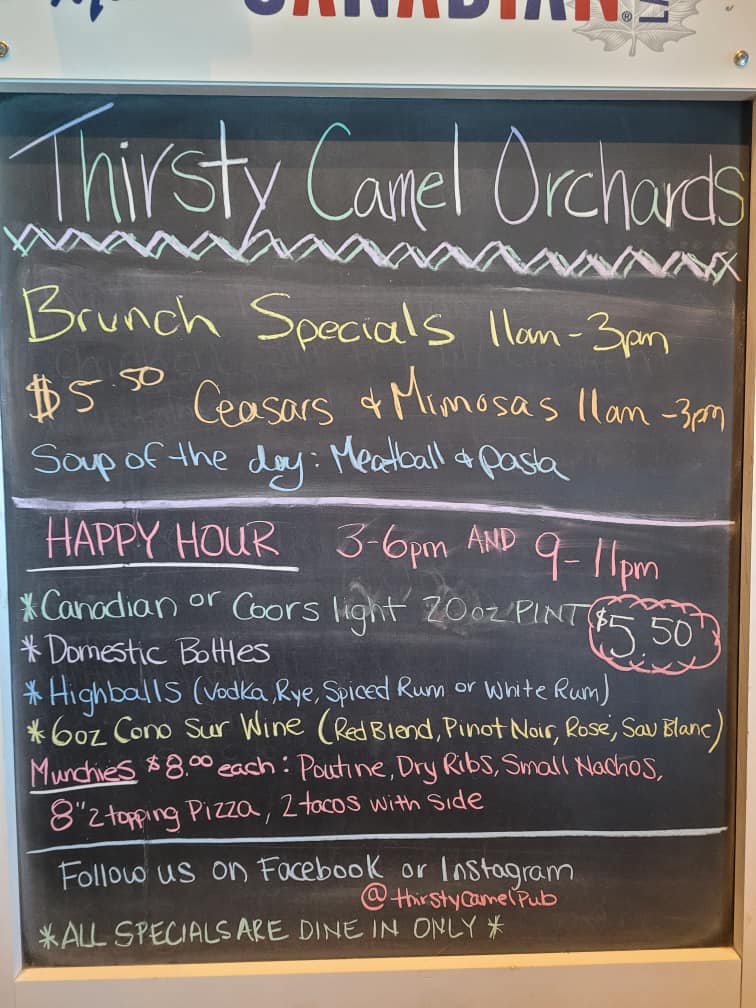 CANADIAN
Thirsty Camel Orchards
Brunch Specials 11am-3pm
$5.50 Ceasars & Mimosas 11am-3pm
Soup of the day: Meatball & Pasta
HAPPY HOUR 3-6pm AND 9-11pm
*Canadian or Coors light 20oz PINT $5.50
*Domestic Bottles
*Highballs (Vodka, Rye, Spiced Rum or White Rum)
*6oz Cono Sur Wine (Red Blend, Pinot Noir, Rosé, Sav Blanc)
Munchies $8.00 each: Poutine, Dry Ribs, Small Nachos,
8" 2 topping Pizza, 2 tacos with side
Follow us on Facebook or Instagram
@thirstyCamelPub
*ALL SPECIALS ARE DINE IN ONLY*